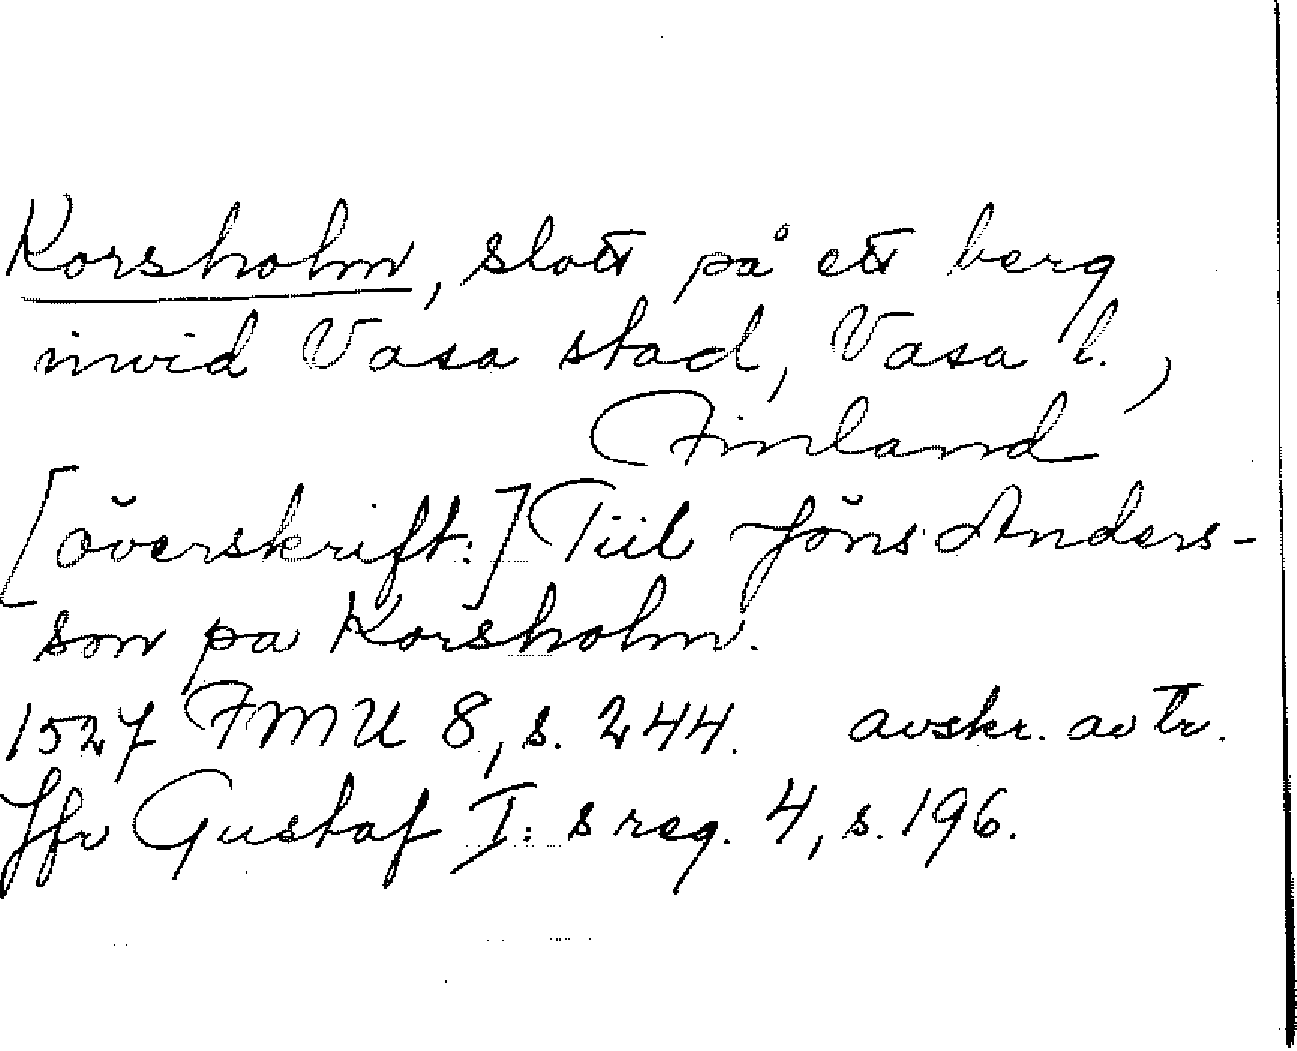 Korsholm, slott på ett berg
invid Vasa stad, Vasa l.,
Finland
[överskrift:] Tiil Jöns Anders-
son pa Korsholm.
1527 FMU 8, s. 244. avskr. av tr.
Jfr Gustaf I:s reg. 4, s. 196.